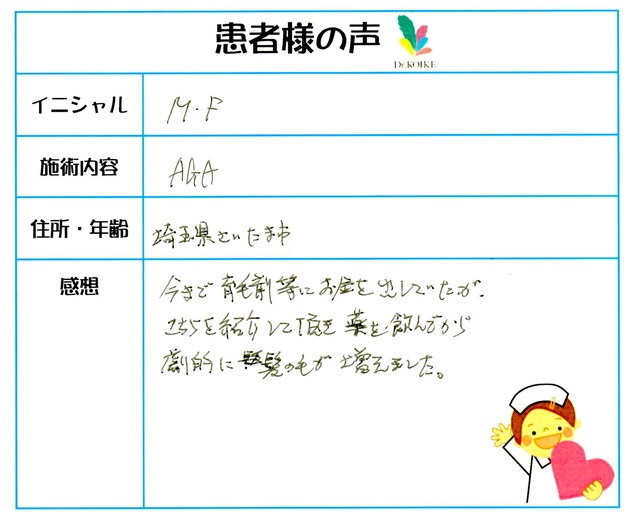 患者様の声
Dr.KOIKE
イニシャル M・F
施術内容 AGA
住所・年齢 埼玉県さいたま市
感想 今まで育毛剤等にお金を出していたが、
こちらを紹介して頂き薬を飲んでから
劇的に髪の毛が増えました。